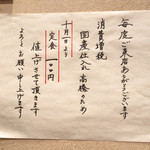 毎度ご来店ありがとうございます
消費増税
国産仕入れ高騰のため
十月一日より
定食一〇〇円
値上げさせて頂きます
よろしくお願い申し上げます